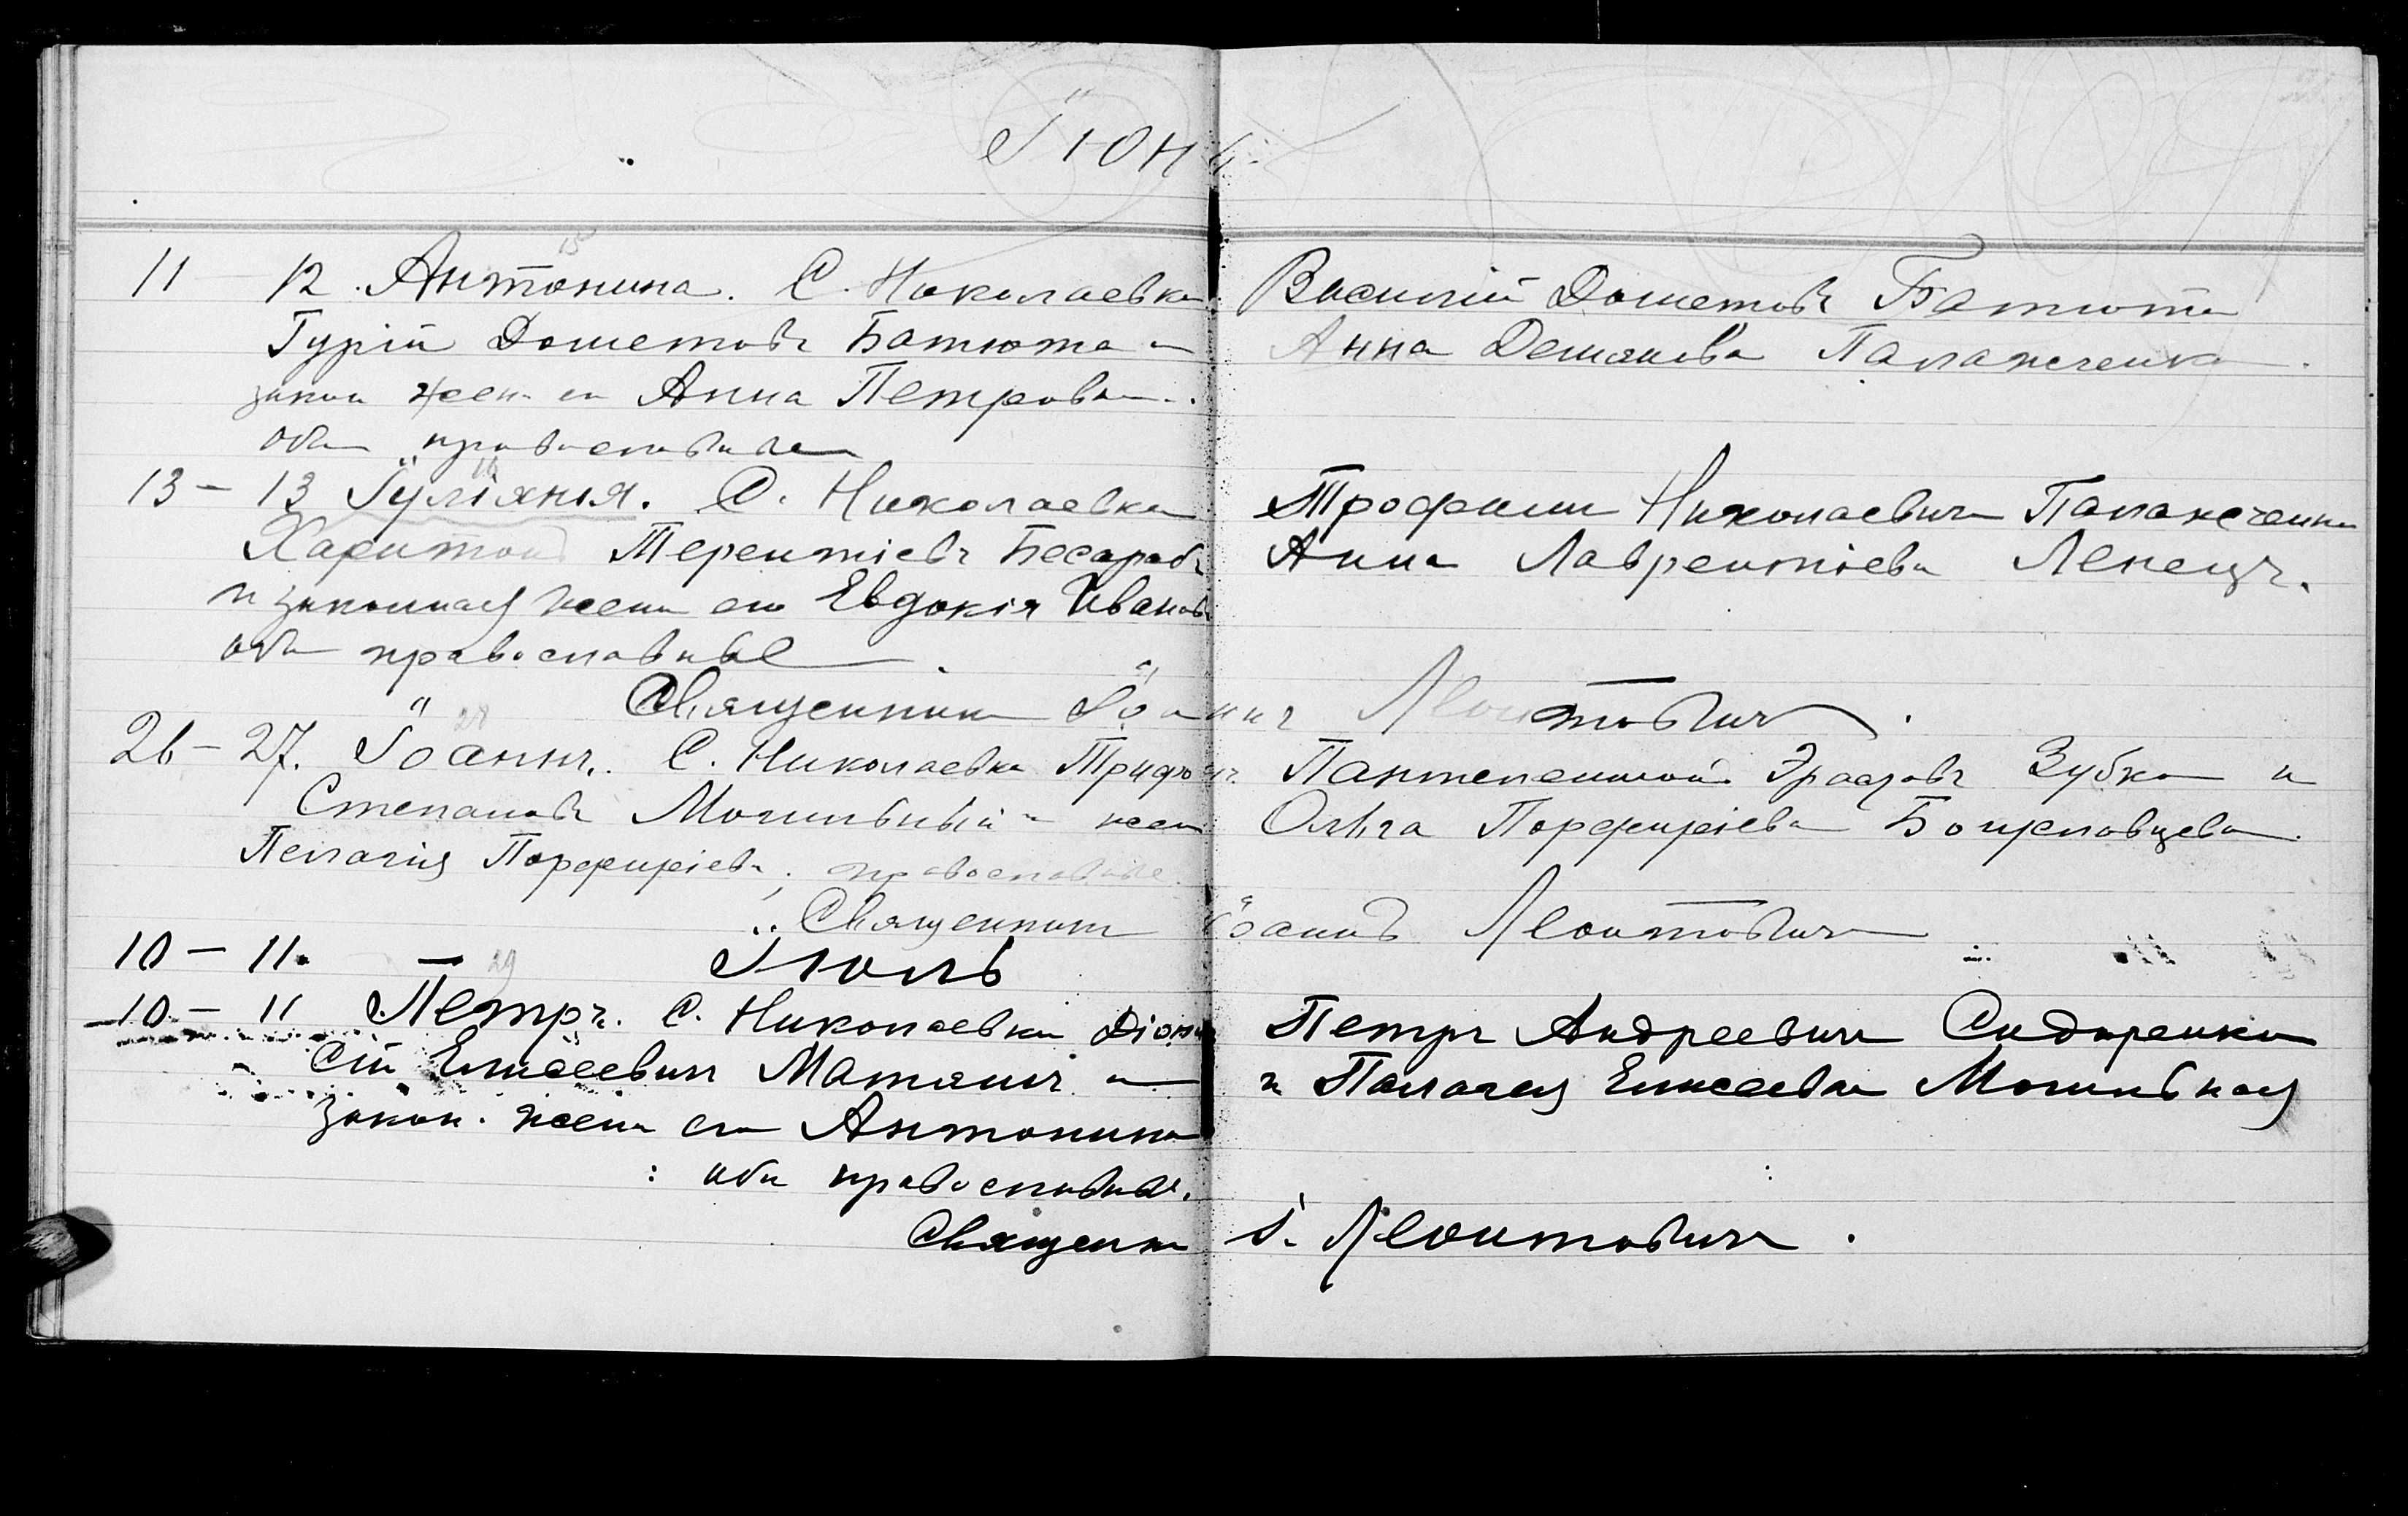 Іюнь
11 12. Антонина. С. Николаевки
Гурій Дометовъ Батюта и
закон жен. ея Анна Петровна.
оба православные
Василій Дометовъ Батюта
Анна Демянова Палажченко.
13 – 13 Іуліянія. С. Николаевки
Харитонъ Терентіевъ Бесарабъ
и законная жена его Евдокія Иванов
оба православные.
Трофимъ Николаевичъ Палажченко
Анна Лаврентіева Ленецъ.
Священникъ Іоаннъ Леонтовичъ.
26 – 27. Іоаннъ. С. Николаевки Трифонъ
Степановъ Могильный и жена
Пелагія Порфиріева; православные.
Пантелеимонъ Зубко и
Ольга Порфиріева
Священникъ Іоаннъ Леонтовичъ
10 – 11. Іюль
10 – 11 Петръ. С. Николаевки Діони
сій Елисеевичъ Матяшъ и
закон. жена его Антонина
оба православные.
Петръ Андреевичъ Сидоренко
и Палагея Елисеевна Могильная
Священник І. Леонтовичъ.